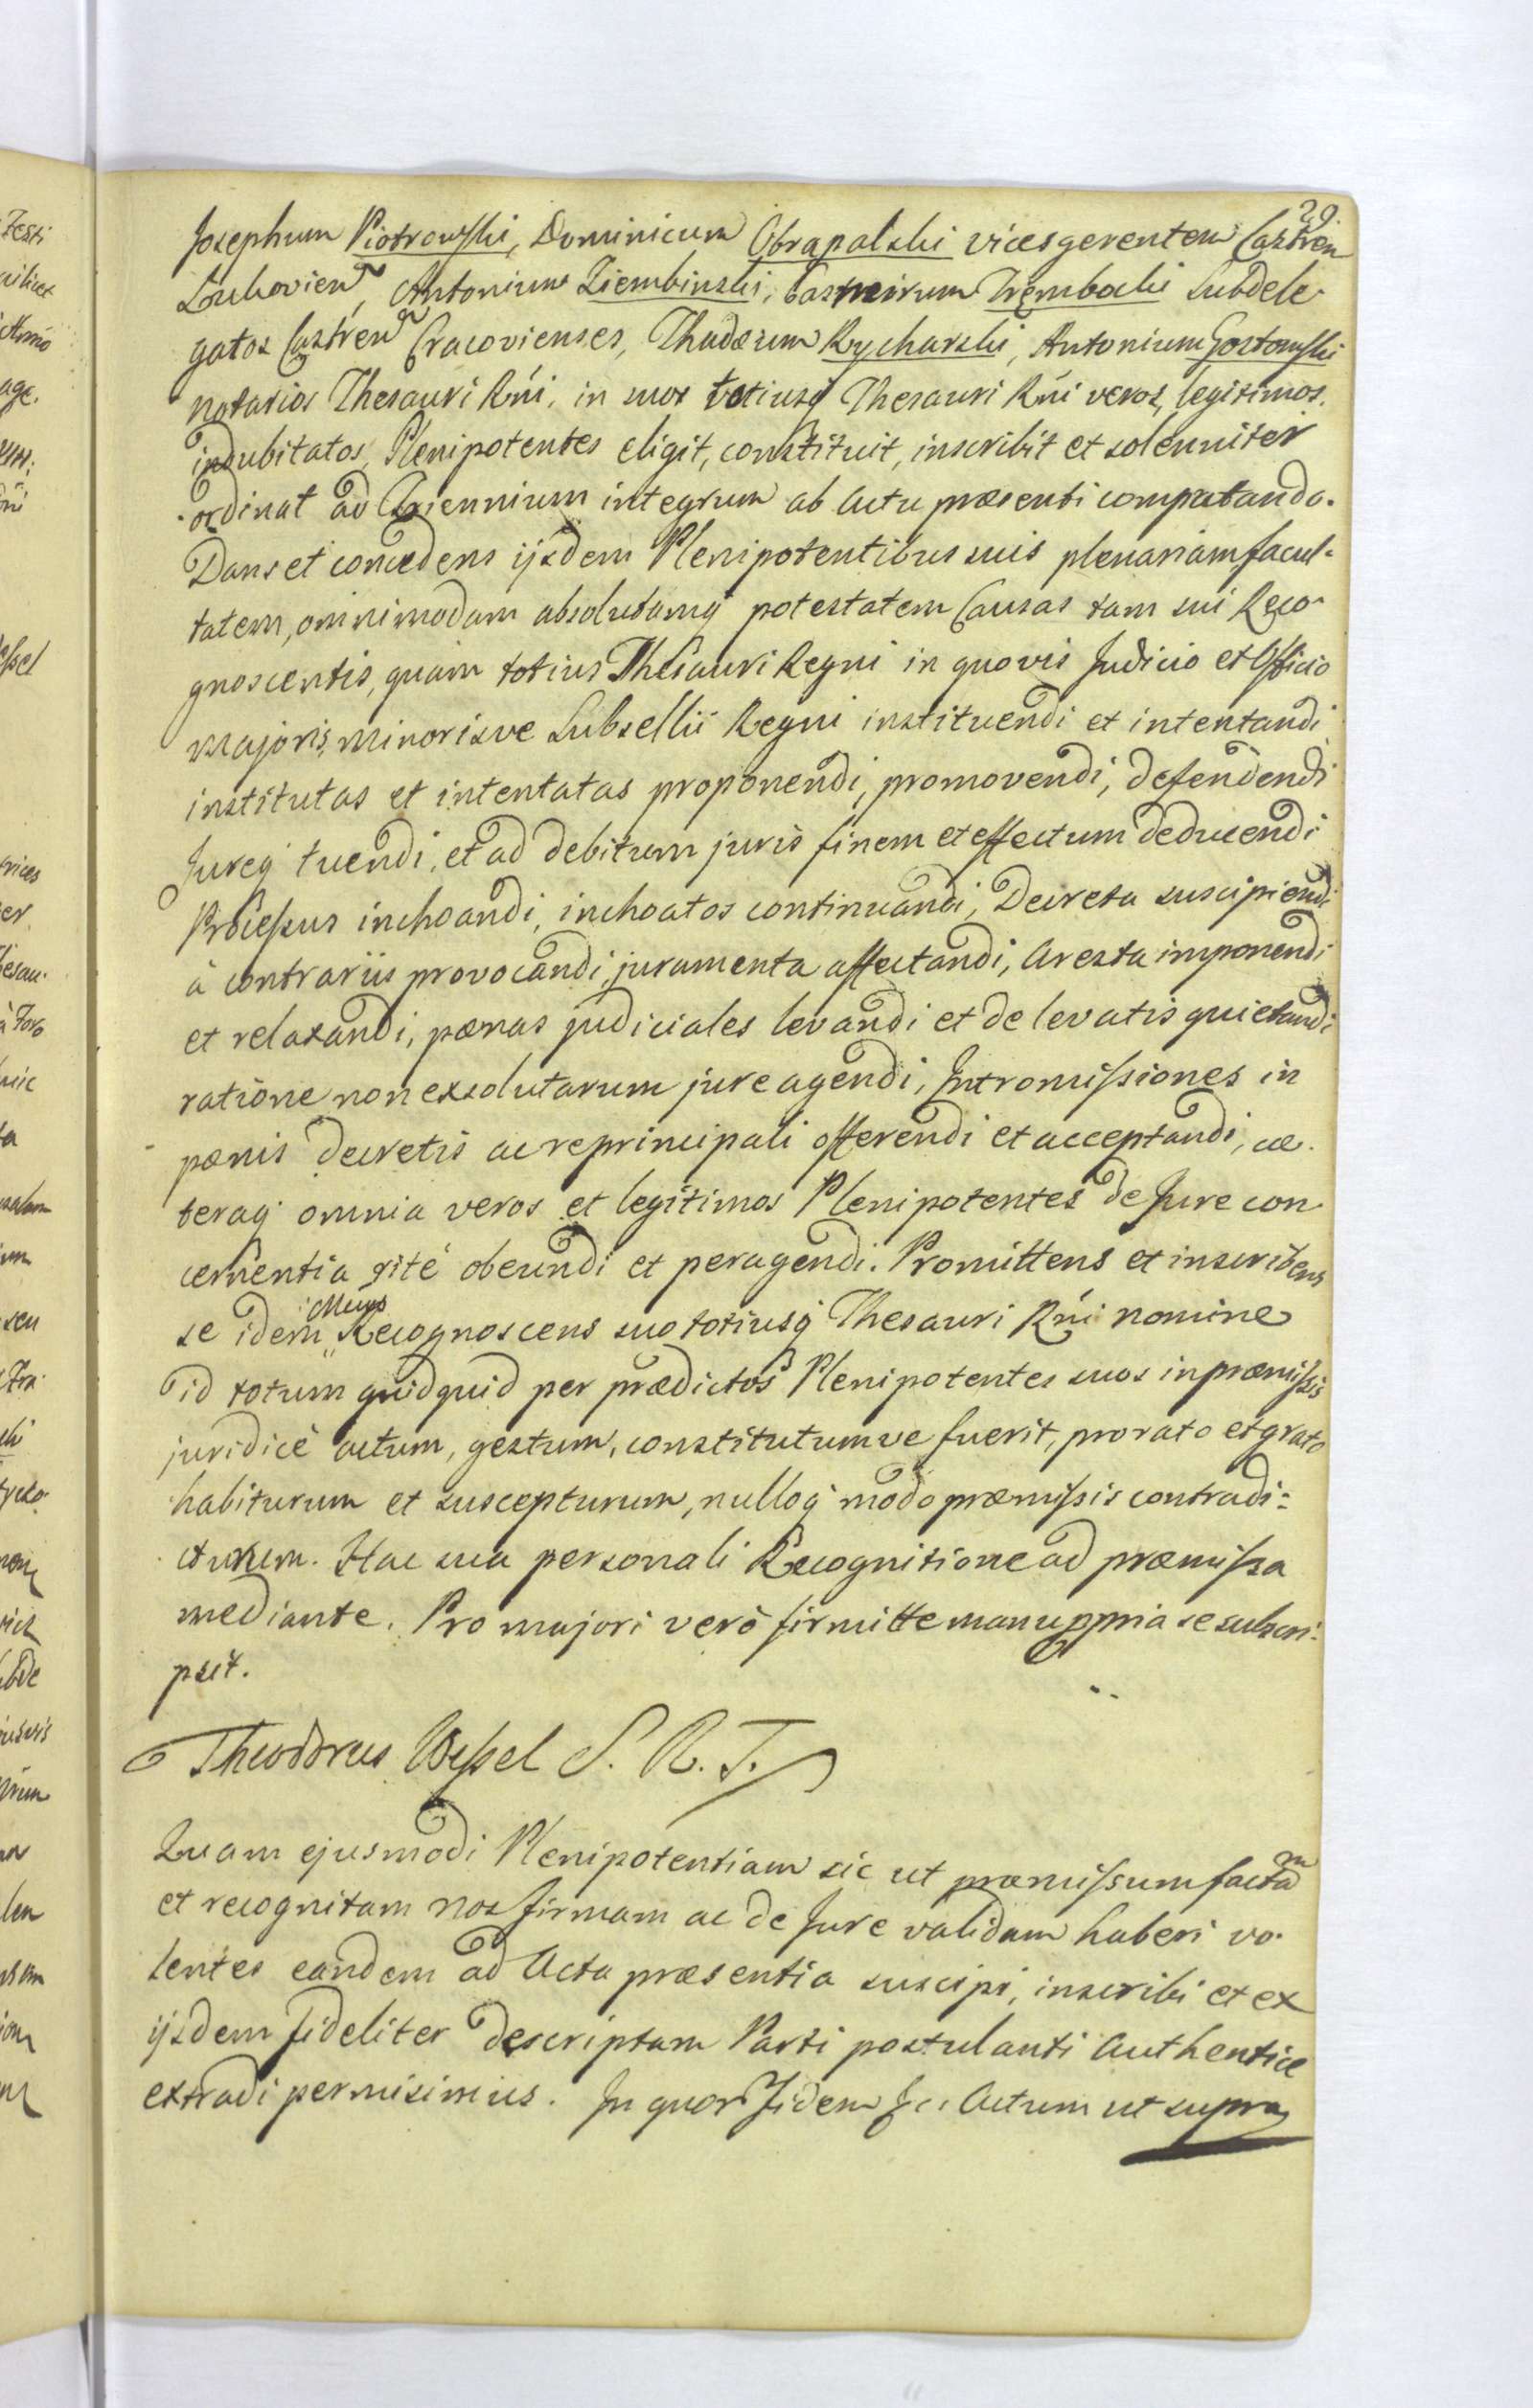 29.
Josephum Piotrowski, Dominicum Obrapalski vicesgerentem Castren
Lukovien, Antonium Ziembinski, Casmirum Trembecki Subdele
gatos Castren Cracovienses, Thadæum Rycharski, Antonium Gostowski
notarios Thesauri Rńi, in suos totiusq Thesauri Rńi veros, legitimos.
indubitatos, Plenipotentes eligit, constituit, inscribit et solenniter
ordinat ad Triennium integrum ab Actu præsenti computando.
Dans et concedens ijsdem Plenipotentibus suis plenariam facul-
tatem, omnimodam absolutamq potestatem Causas tam sui Reco
gnoscentis, quam totius Thesauri Regni in quovis Judicio et Officio
Majoris, Minorisve Subsellii Regni instituendi et intentandi
institutas et intentatas proponendi, promovendi, defendendi
Jureq tuendi, et ad debitum juris finem et effectum deducendi
Processus inchoandi, inchoatos continuandi, Decreta suscipiendi
à contrariis provocandi, juramenta affectandi, Aresta imponendi
et relaxandi, pænas judiciales levandi et de levatis quietandi
ratione non exsolutarum jure agendi, Intromissiones in
pænis decretis ac re principali offerendi et acceptandi, cæ
teraq omnia veros et legitimos Plenipotentes de Jure con
cernentia rité obeundi et peragendi. Promittens et inscribens
se idem Mcus Recognoscens suo totiusq Thesauri Rńi nomine
id totum quidquid per prædictos Plenipotentes suos in præmissis
juridicè actum, gestum, constitutumve fuerit, pro rato et grato
habiturum et suscepturum, nulloq modo præmissis contradi-
cturum. Hac sua personali Recognitione ad præmissa
mediante. Pro majori verò firmitte manu ppria se subscri-
psit.
Theodorus Wessel S. R. T.
Quam ejusmodi Plenipotentiam sic ut præmissum factam
et recognitam nos firmam ac de Jure validam haberi vo
lentes eandem ad Acta præsentia suscipi, inscribi et ex
ijsdem fideliter descriptam Parti postulanti Authentice
extradi permisimus. In quor Fidem Actum ut supra